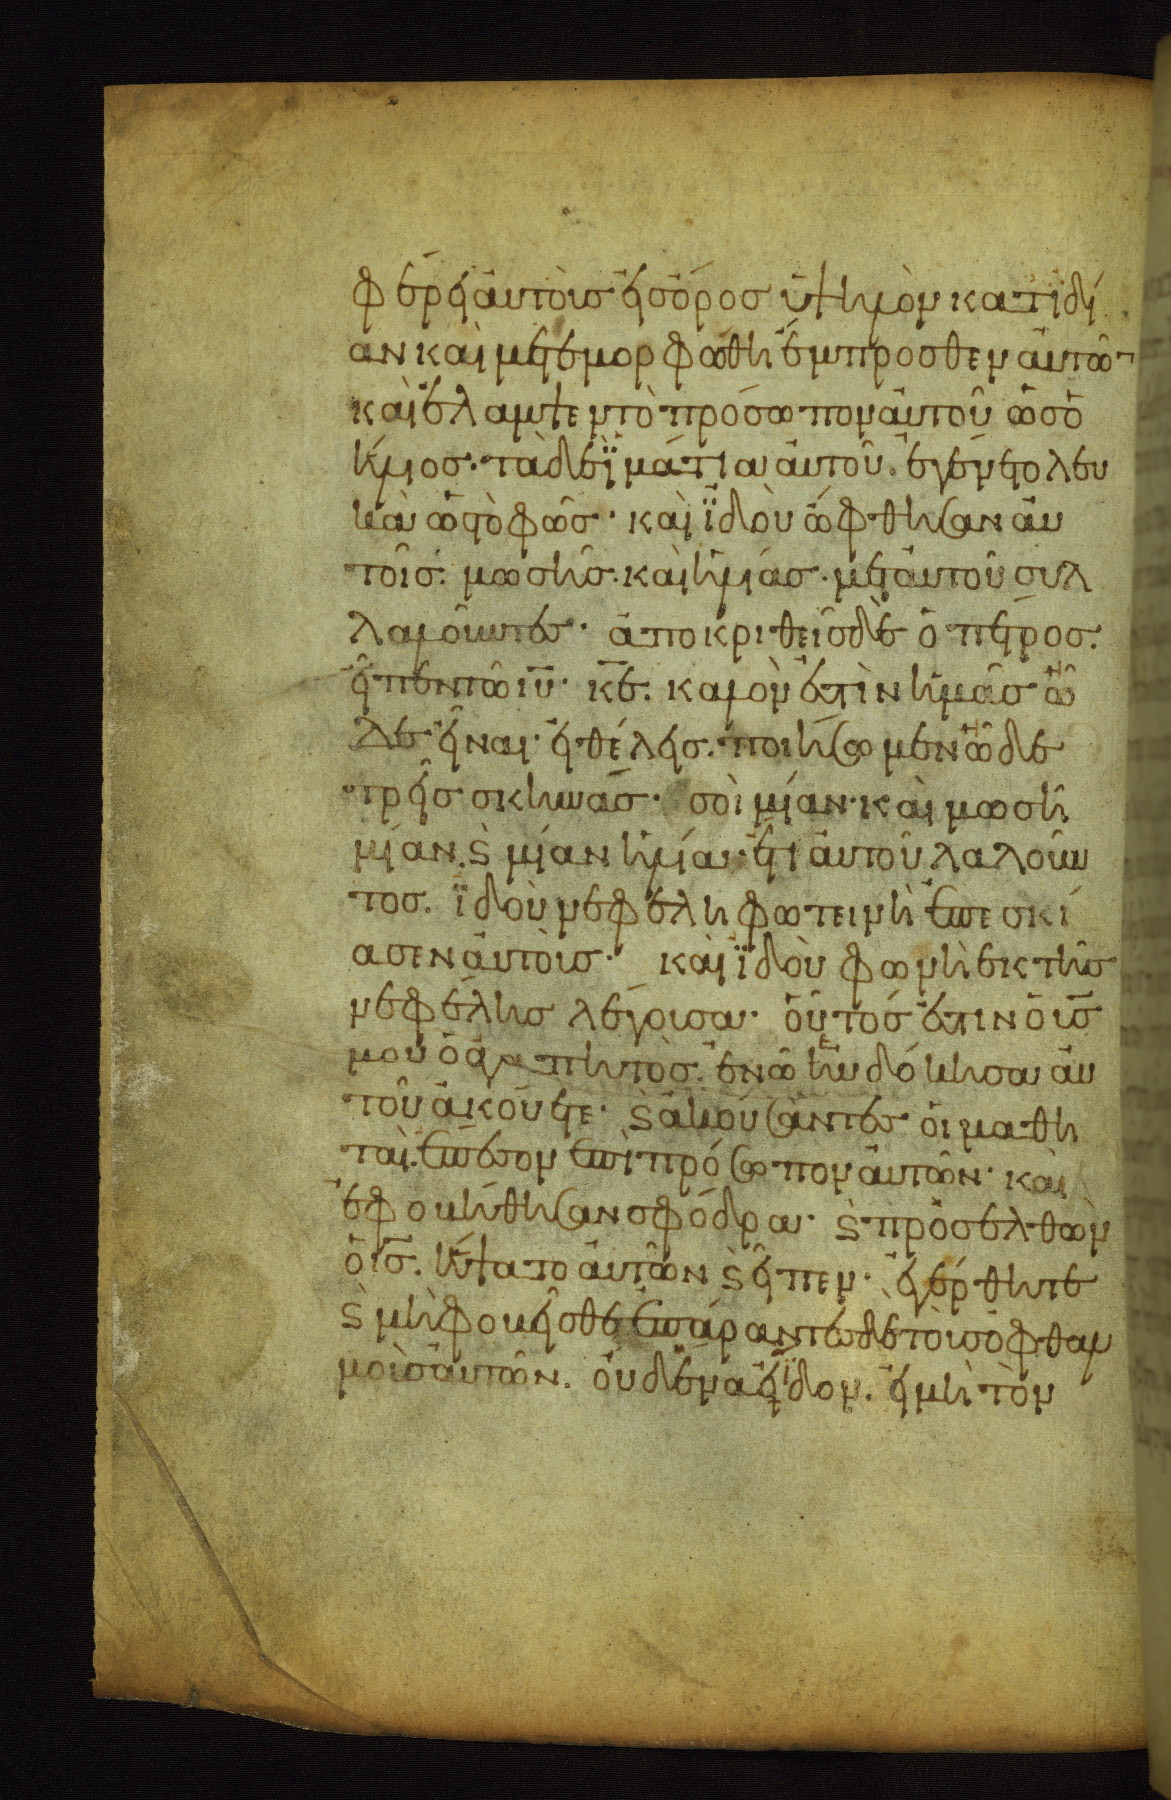 φέρει αὐτοὺσ εἰσ ὄροσ ὑψηλὸν κατιδί
αν καὶ μετεμορφώθη ἔμπροσθεν αὐτῶν
καὶ ἔλαμψεν τὸ πρόσωπον αὐτοῦ ὡσ ὁ
ἥλιοσ· τὰ δὲ ϊμάτια αὐτοῦ. ἐγένετο λευ
κὰ ὡσ τὸ φῶσ· καὶ ϊδοὺ ὤφθησαν αὐ
τοῖσ. μωσῆσ. καὶ ἡλίασ. μετ αὐτοῦ συλ
λαλοῦντεσ· ἀποκριθεὶσ δὲ ὁ πέτροσ.
εἶπεν τῶ ιῦ· κε. καλόν ἐστὶν ἡμᾶσ ὧ
δε εἶναι· εἰ θέλεισ. ποιήσωμεν ὧδε
τρεῖσ σκηνάσ· σοὶ μίαν· καὶ μωσῆ
μίαν. ϗ μίαν ἡλία· ἔτι αὐτοῦ λαλοῦν
τοσ. ϊδοὺ νεφέλη φωτεινὴ ἐπεσκί
ασεν αὐτοὺσ· καὶ ϊδοὺ φωνὴ ἐκ τῆσ
νεφέλησ λέγουσα· οὗτόσ ἐστιν ὁ υσ
μου ὁ ἀγαπητὸσ. ἐν ὧ ηὐδόκησα αὐ
τοῦ ἀκούετε· ϗ ἀκούσαντεσ οἱ μαθη
ταὶ. ἔπεσον ἐπὶ πρόσωπον αὐτῶν· καὶ
ἐφοβήθησαν σφόδρα· ϗ προσελθὼν
ὁ ισ. ἥψατο αὐτῶν ϗ εἶπεν· ἐγέρθητε
ϗ μὴ φοβεῖσθε ἐπάραντεσ δὲ τοὺσ ὀφθαλ
μοὺσ αὐτῶν. οὐδένα εἶδον. εἰ μὴ τὸν